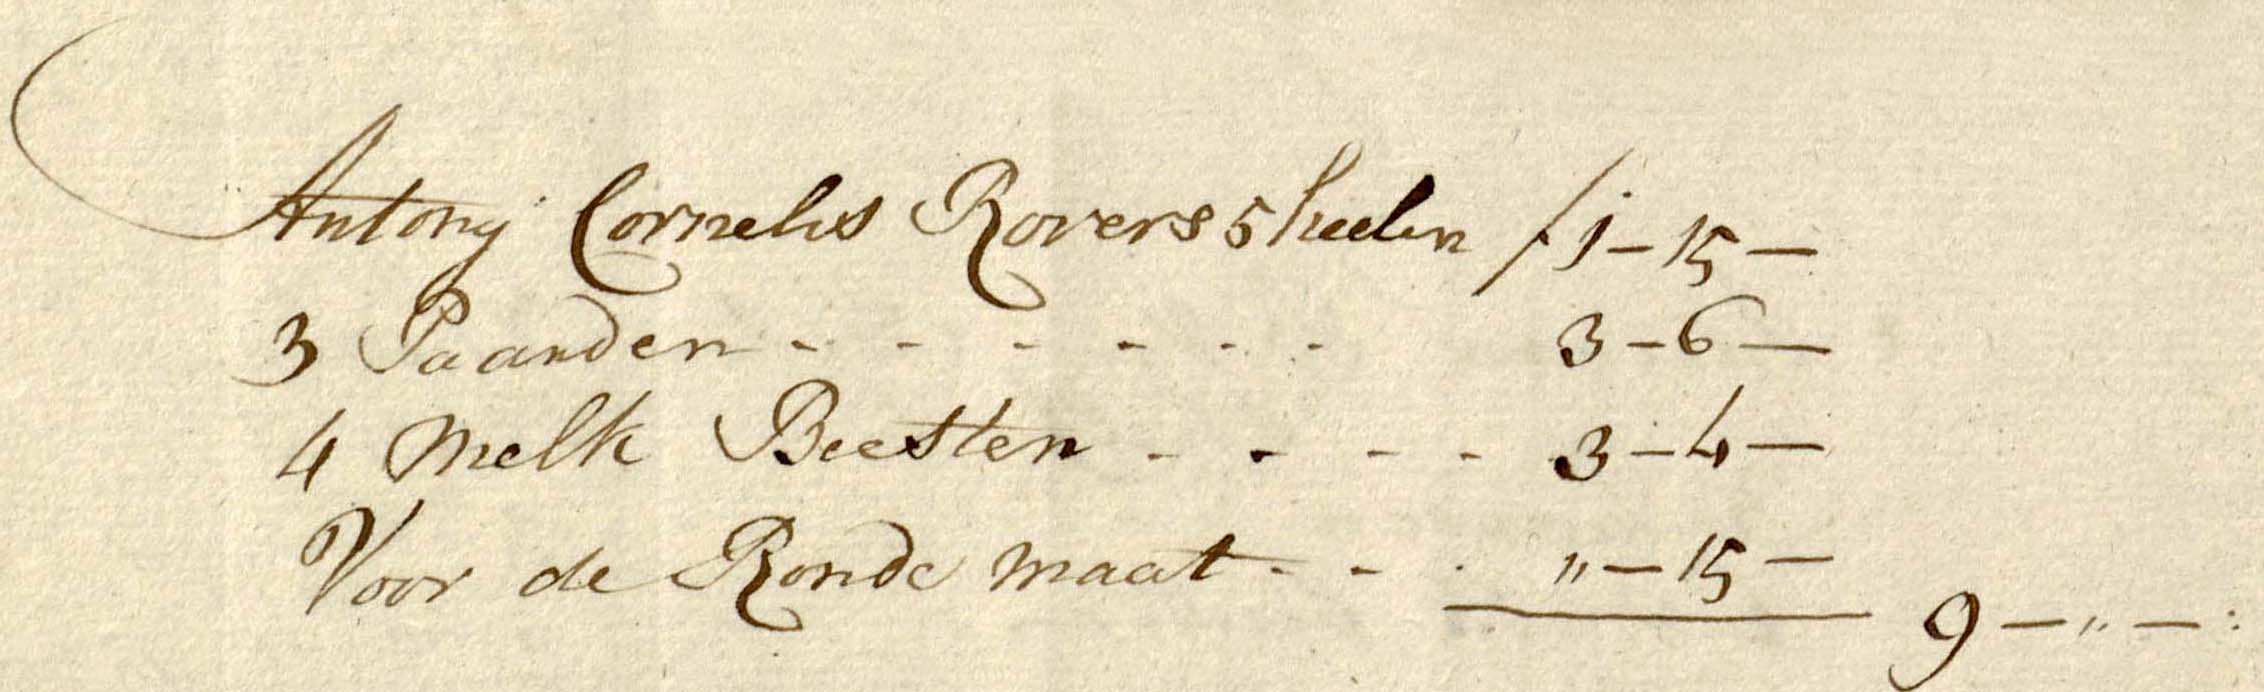 Antony Cornelis Rovers 5 heelen f 1 - 15 -
3 Paarden - - - - - - 3 - 6 -
4 Melk Beesten - - - - 3 - 4 -
Voor de Ronde maat - - - „ - 15 -
9 - „ - :